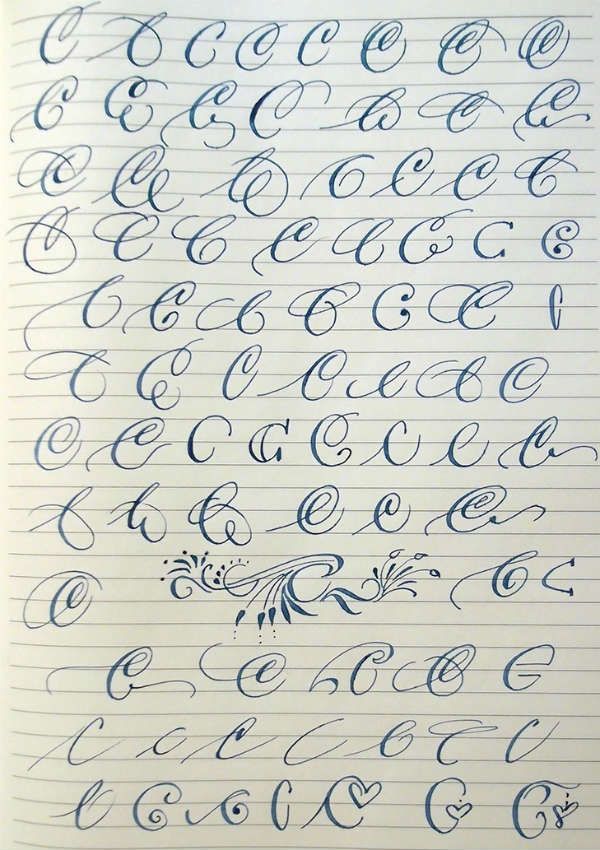 C C C C C C C C
C C C C C C C
C C C C C C C
C C C C C C C C
C C C C C C C
C C C C C C C
C C C C C C C C
C C C C C C
C C C C
C C C C C
C C C C C C C
C C C C C C C